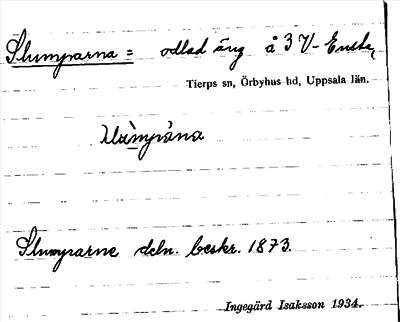 Slumparna = odlad äng å 3 V- Ensta,
Tierps sn, Örbyhus hd, Uppsala län.
Slumparne deln. beskr. 1873.
Ingegärd Isaksson 1934.